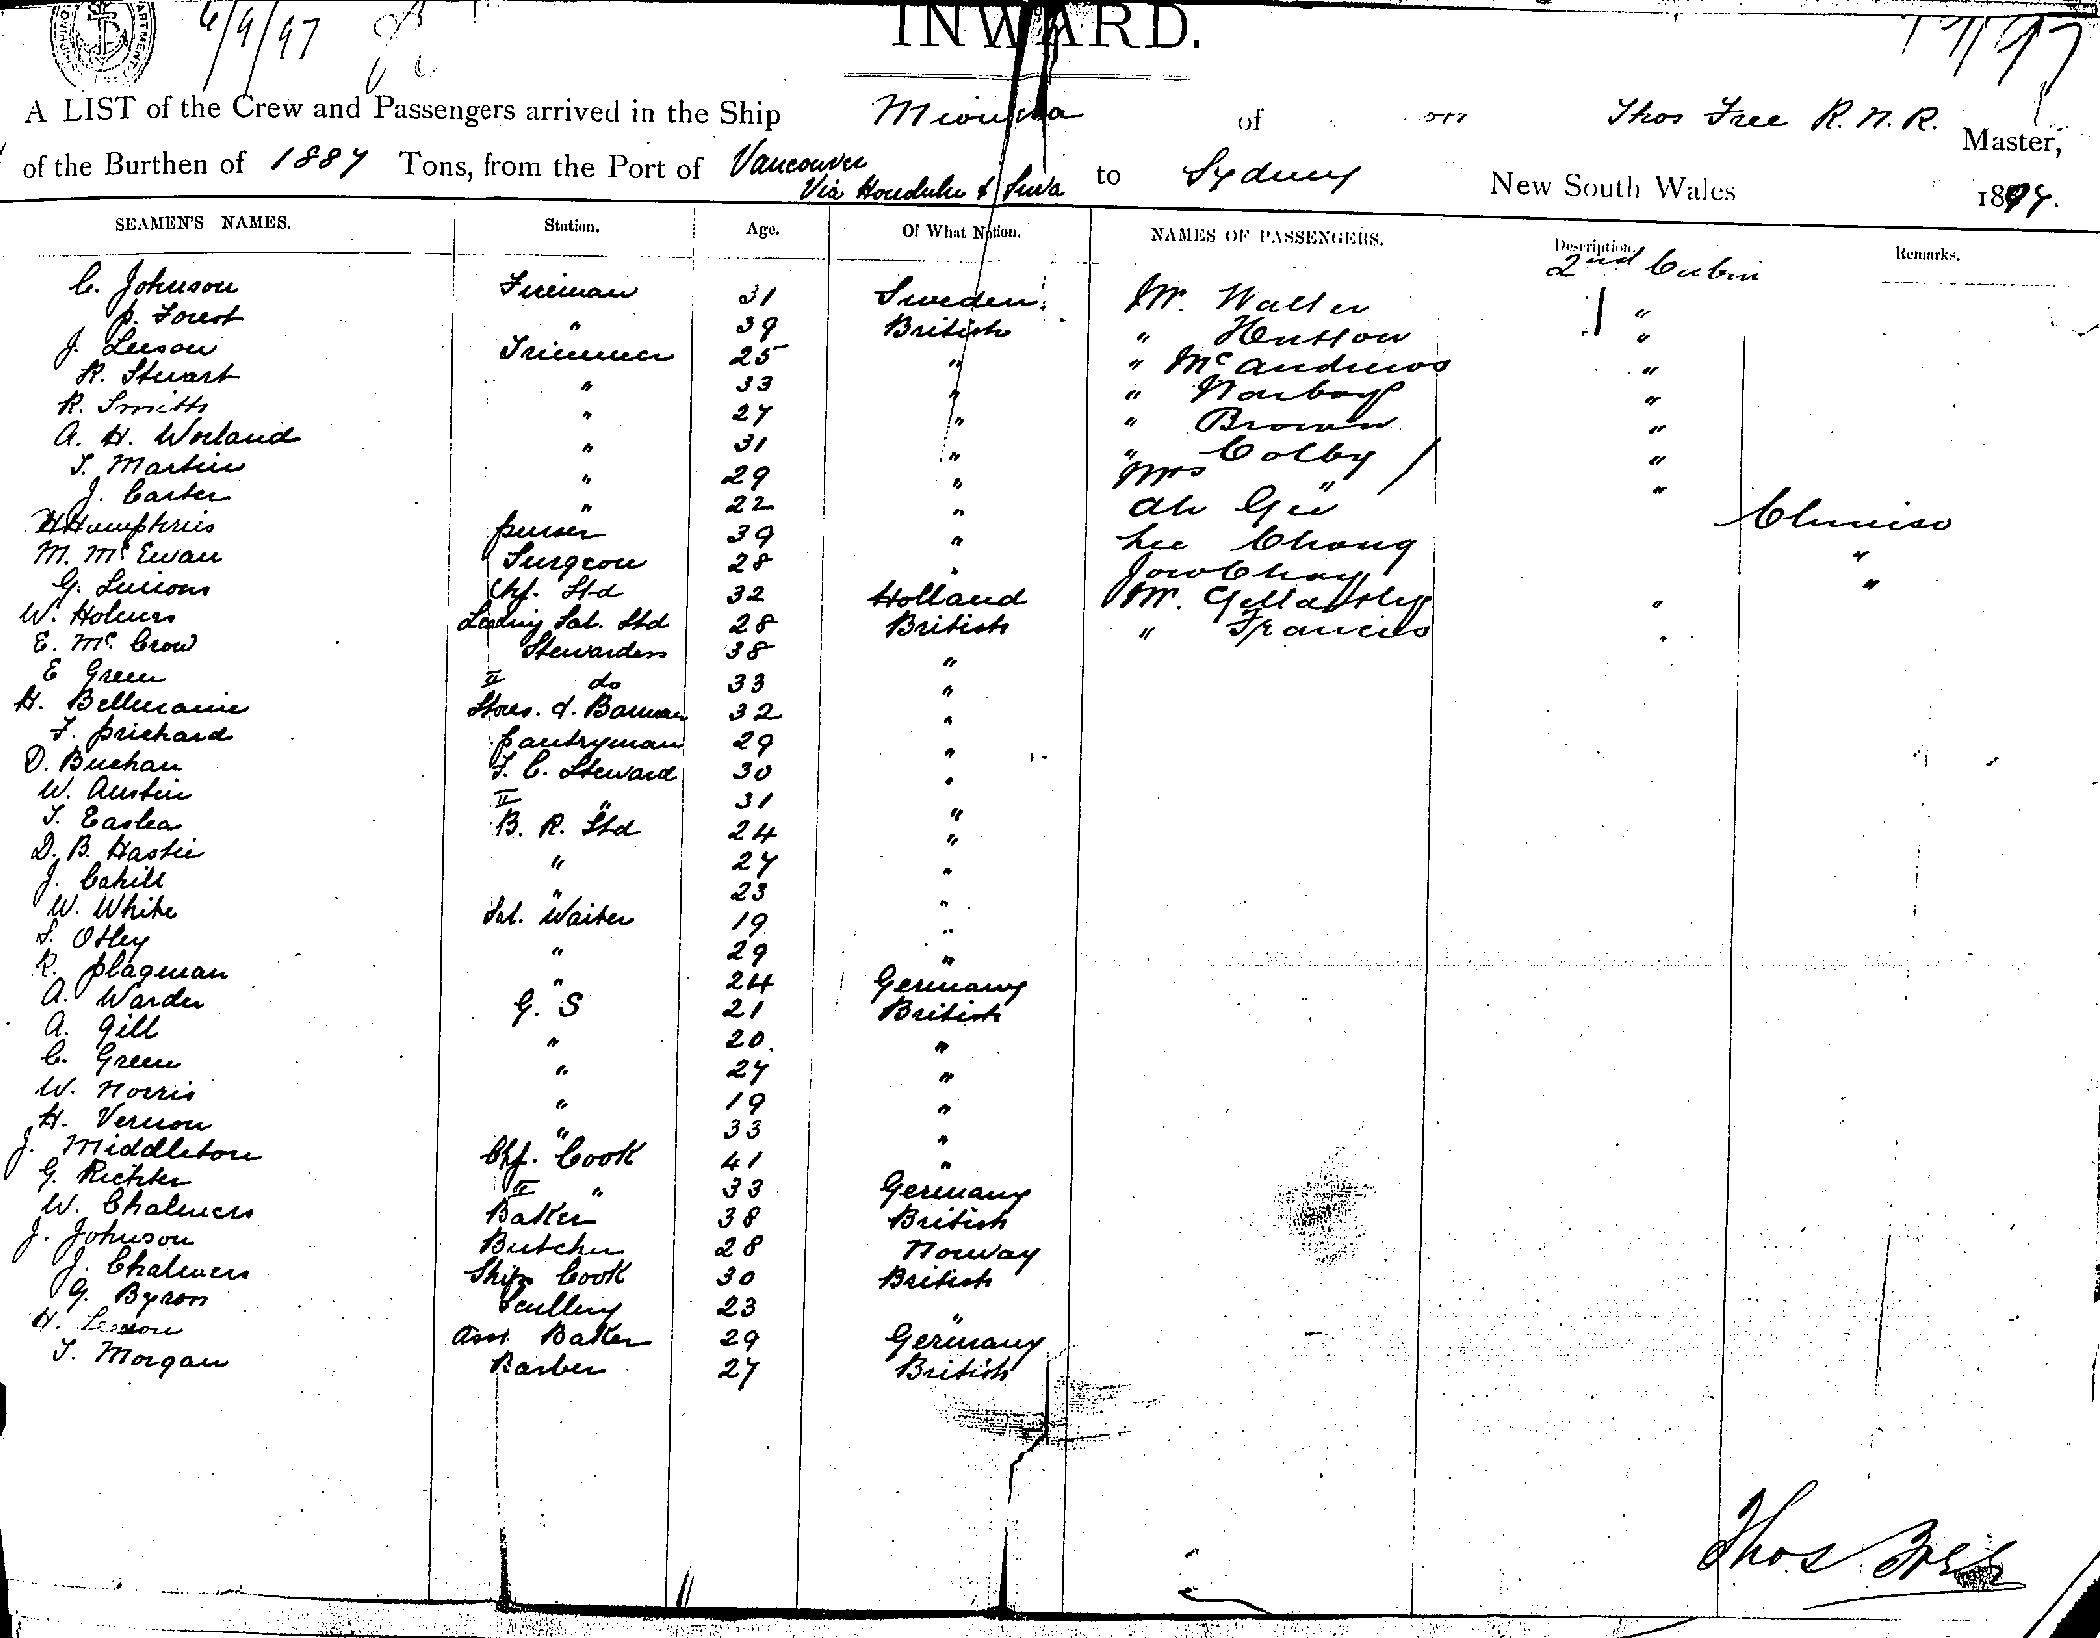 6/9/97
INWARD.
A LIST of the Crew and Passengers arrived in the Ship Miowera of Thos Free R.N.R. Master,
of the Burthen of 1887 Tons, from the Port of Vancouver Via Honolulu & Suva to Sydney New South Wales 1897.
SEAMEN'S NAMES. Station. Age. Of What Nation. NAMES OF PASSENGERS. Description. Remarks.
2nd Cabin
C. Johnson Fireman 31 Sweden Mr. Walter "
P. Forest " 39 British " Hutton "
J. Leeson Trimmer 25 " " McAndrews "
R. Stuart " 33 " " "
R. Smith " 27 " " Brown "
A. H. Worland " 31 " " Colby "
T. Martin " 29 " Mrs " "
J. Carter " 22 " Ah Gee Chinese
H Humphries purser 39 " Lee Chong "
M. McEwan Surgeon 28 " Jow Chay "
G. Chf. Std 32 Holland Mr. "
W. Holmes Leading Sal. Std 28 British " Francis "
E. McCrow Stewardess 38 "
E Green II do 33 "
H. Bellmaine Stores. & Barman 32 "
F. prichard pantryman 29 "
D. Buchan F. C. Steward 30 "
W. Austin II " 31 "
T. Easlea B. R. Std 24 "
D. B. Hastie " 27 "
J. Cahill " 23 "
W. White Sal. Waiter 19 "
S. Otley " 29 "
R. plagman " 24 Germany
A. Warder G. S 21 British
A. Gill " 20 "
C. Green " 27 "
W. Norris " 19 "
H. Vernon " 33 "
J. Middleton Chf. Cook 41 "
G. Richter II " 33 Germany
W. Chalmers Baker 38 British
J. Johnson Butcher 28 Norway
J. Chalmers Ships Cook 30 British
G. Byron Scullery 23 "
H. Asst. Baker 29 Germany
T. Morgan Barber 27 British
Thos Free